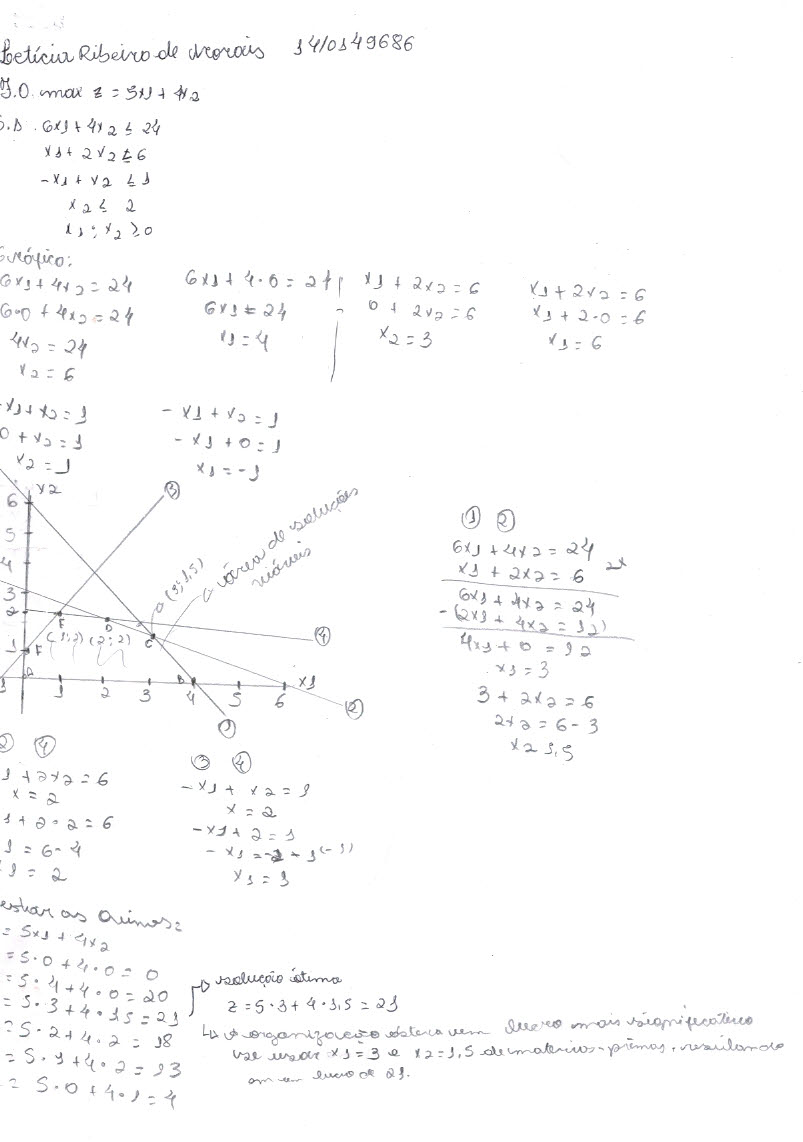 Letícia Ribeiro de Morais 14/0149686
F.O. max z = 5x1 + 4x2
S.A. 6x1 + 4x2 ≤ 24
x1 + 2x2 ≤ 6
-x1 + x2 ≤ 1
x2 ≤ 2
x1 ; x2 ≥ 0
Gráfico:
6x1 + 4x2 = 24
6·0 + 4x2 = 24
4x2 = 24
x2 = 6
6x1 + 4·0 = 24
6x1 = 24
x1 = 4
x1 + 2x2 = 6
0 + 2x2 = 6
x2 = 3
x1 + 2x2 = 6
x1 + 2·0 = 6
x1 = 6
-x1 + x2 = 1
0 + x2 = 1
x2 = 1
-x1 + x2 = 1
-x1 + 0 = 1
x1 = -1
x2
6
5
4
3
2
1
③
(3;1,5)
área de soluções
viáveis
④
E
D
C
(1;2) (2;2)
F
A
B
x1
1 1 2 3 4 5 6
②
①
① ②
6x1 + 4x2 = 24
x1 + 2x2 = 6 2x
6x1 + 4x2 = 24
-(2x1 + 4x2 = 12)
4x1 + 0 = 12
x1 = 3
3 + 2x2 = 6
2x2 = 6 - 3
x2 1,5
② ④
1 + 2x2 = 6
x = 2
1 + 2·2 = 6
1 = 6 - 4
1 = 2
③ ④
-x1 + x2 = 1
x = 2
-x1 + 2 = 1
-x1 = -2 + 1 (-1)
x1 = 1
testar os
= 5x1 + 4x2
= 5·0 + 4·0 = 0
= 5·4 + 4·0 = 20
= 5·3 + 4·1,5 = 21
= 5·2 + 4·2 = 18
= 5·1 + 4·2 = 13
= 5·0 + 4·1 = 4
solução ótima
z = 5·3 + 4·1,5 = 21
A organização obtera um lucro mais significativo
se usar x1 = 3 e x2 = 1,5 de matérias-primas, resultando
em um lucro de 21.